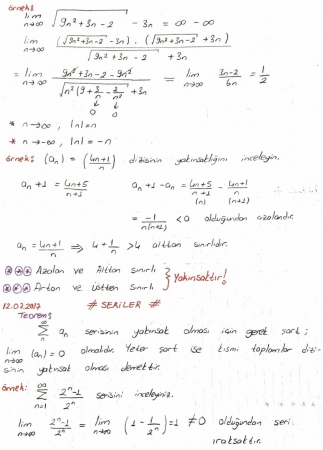 örnek:
lim n→∞ √(9n²+3n-2) - 3n = ∞ - ∞
lim n→∞ (√(9n²+3n-2) - 3n) . (√(9n²+3n-2) + 3n) / √(9n²+3n-2) + 3n
= lim n→∞ 9n²+3n-2-9n² / √(n²(9+3/n-2/n²)) + 3n = lim n→∞ 3n-2 / 6n = 1/2
0 0
* n→∞ , |n|=n
* n→-∞ , |n|=-n
örnek: (an) = (4n+1 / n) dizisinin yakınsaklığını inceleyin.
an+1 = 4n+5 / n+1 an+1 - an = 4n+5 / n+1 - 4n+1 / n
(n) (n+1)
= -1 / n(n+1) < 0 olduğundan azalandır.
an = 4n+1 / n ⇒ 4 + 1/n > 4 alttan sınırlıdır.
Azalan ve Alttan sınırlı } Yakınsaktır!
Artan ve üstten sınırlı
12.07.2017 # SERİLER #
Teorem:
∞ Σ an serisinin yakınsak olması için gerek şart;
lim n→∞ (an) = 0 olmalıdır. Yeter şart ise kısmi toplamlar dizi-
sinin yakınsak olması demektir.
örnek: ∞ Σ n=1 2ⁿ-1 / 2ⁿ serisini inceleyiniz.
lim n→∞ 2ⁿ-1 / 2ⁿ = lim n→∞ (1 - 1/2ⁿ) = 1 ≠ 0 olduğundan seri
ıraksaktır.